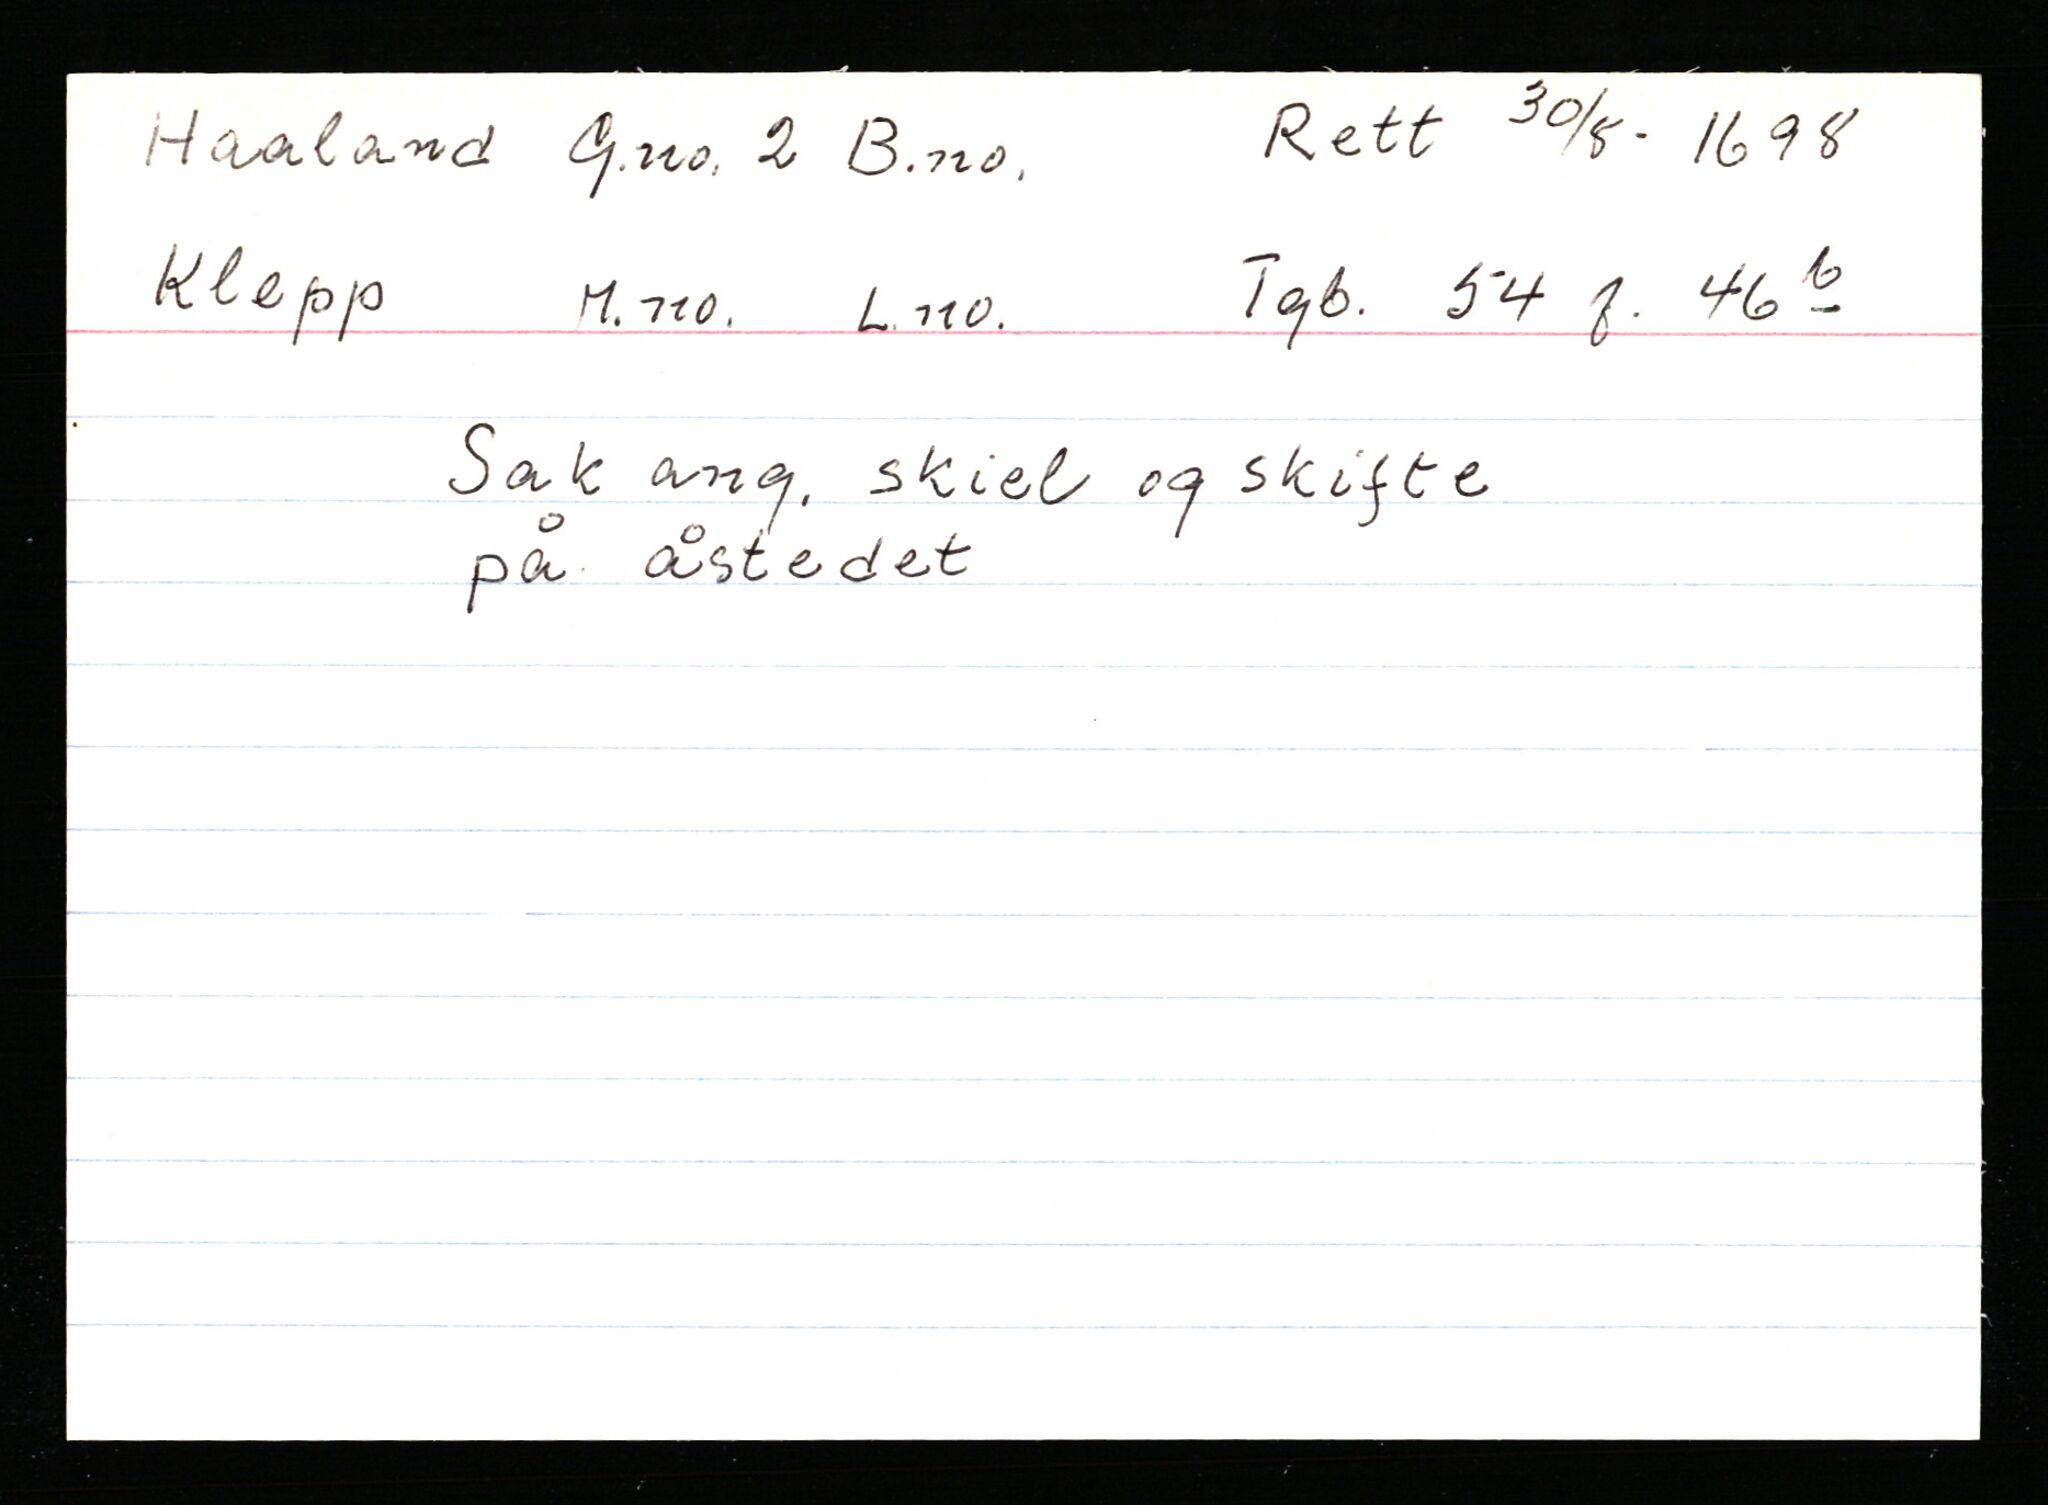 Haaland G.no. 2 B.no. Rett 30/8- 1698
Klepp M.no. L.no. Tgb. 54 f. 46 b
Sak ang. skiel og skifte
på åstedet